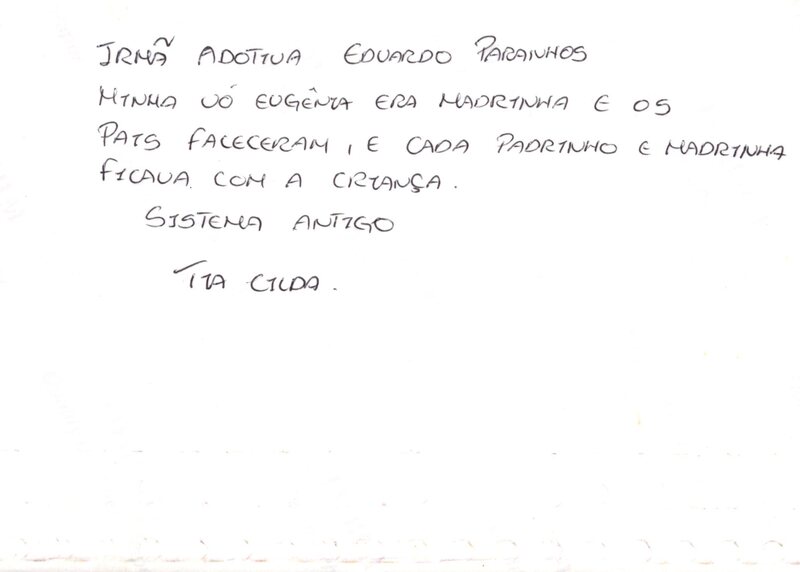 IRMÃ ADOTIVA EDUARDO PARAINHOS
MINHA VÓ EUGÊNIA ERA MADRINHA E OS
PAIS FALECERAM, E CADA PADRINHO E MADRINHA
FICAVA COM A CRIANÇA.
SISTEMA ANTIGO
TIA CILDA.